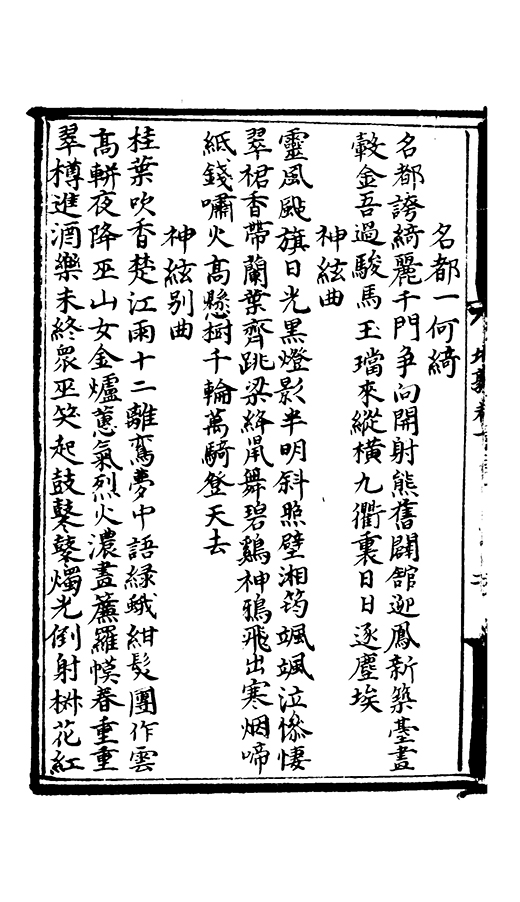 名都一何綺
名都誇綺麗千門争向開射熊舊闢舘迎鳳新築臺畫
轂金吾過駿馬玉璫來縱横九衢裏日日逐塵埃
神絃曲
靈風颭旗日光黑燈影半明斜照壁湘筠颯颯泣慘悽
翠裙香帶蘭葉齊跳梁絳鼡舞碧鷄神鴉飛出寒烟啼
紙錢嘯火高懸樹千輪萬騎登天去
神絃别曲
桂葉吹香楚江雨十二離鸞夢中語緑蛾紺髮團作雲
高軿夜降巫山女金爐蕙氣烈火濃畫簾羅幙春重重
翠樽進酒樂未終衆巫笑起鼓鼕鼕燭光倒射桝花紅